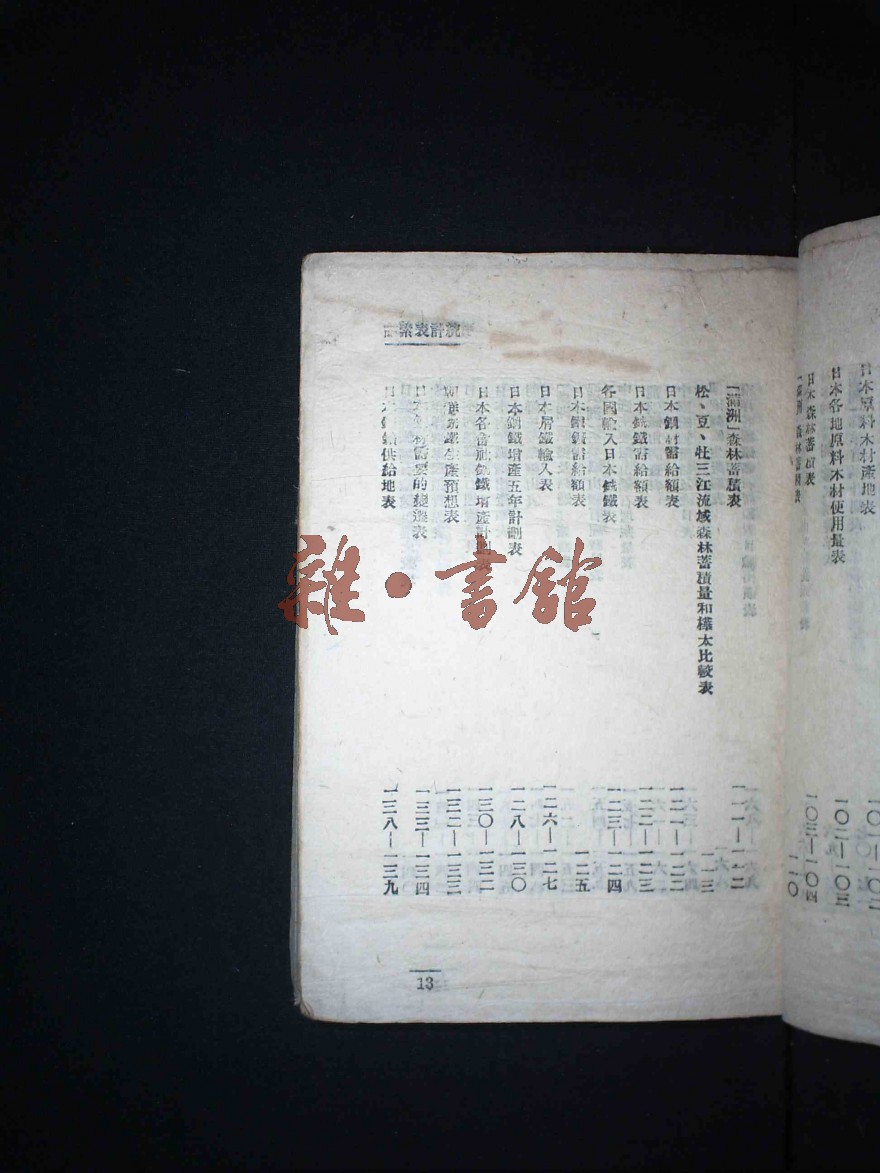 日本原料木材產地表 一〇一—一〇二
日本各地原料木材使用量表 一〇二—一〇三
日本森林蓄積表 一〇三—一〇四
森林蓄積表 一一〇
統計表索
「滿洲」森林蓄積表 一一一—一一二
松、豆、牡三江流域森林蓄積量和樺太比較表 一一三
日本鋼材需給額表 一二一—一二二
日本銑鐵需給額表 一二二—一二三
各國輸入日本銑鐵表 一二三—一二四
日本鋼鐵需給額表 一二五
日本屑鐵輸入表 一二六—一二七
日本鋼鐵增產五年計劃表 一二八—一三〇
日本各會社銑鐵增產計劃表 一三〇—一三二
鋼業生產預想表 一三二—一三三
日本鋼材需要的變遷表 一三三—一三四
日本供給地表 一三八—一三九
13
雜·書舘